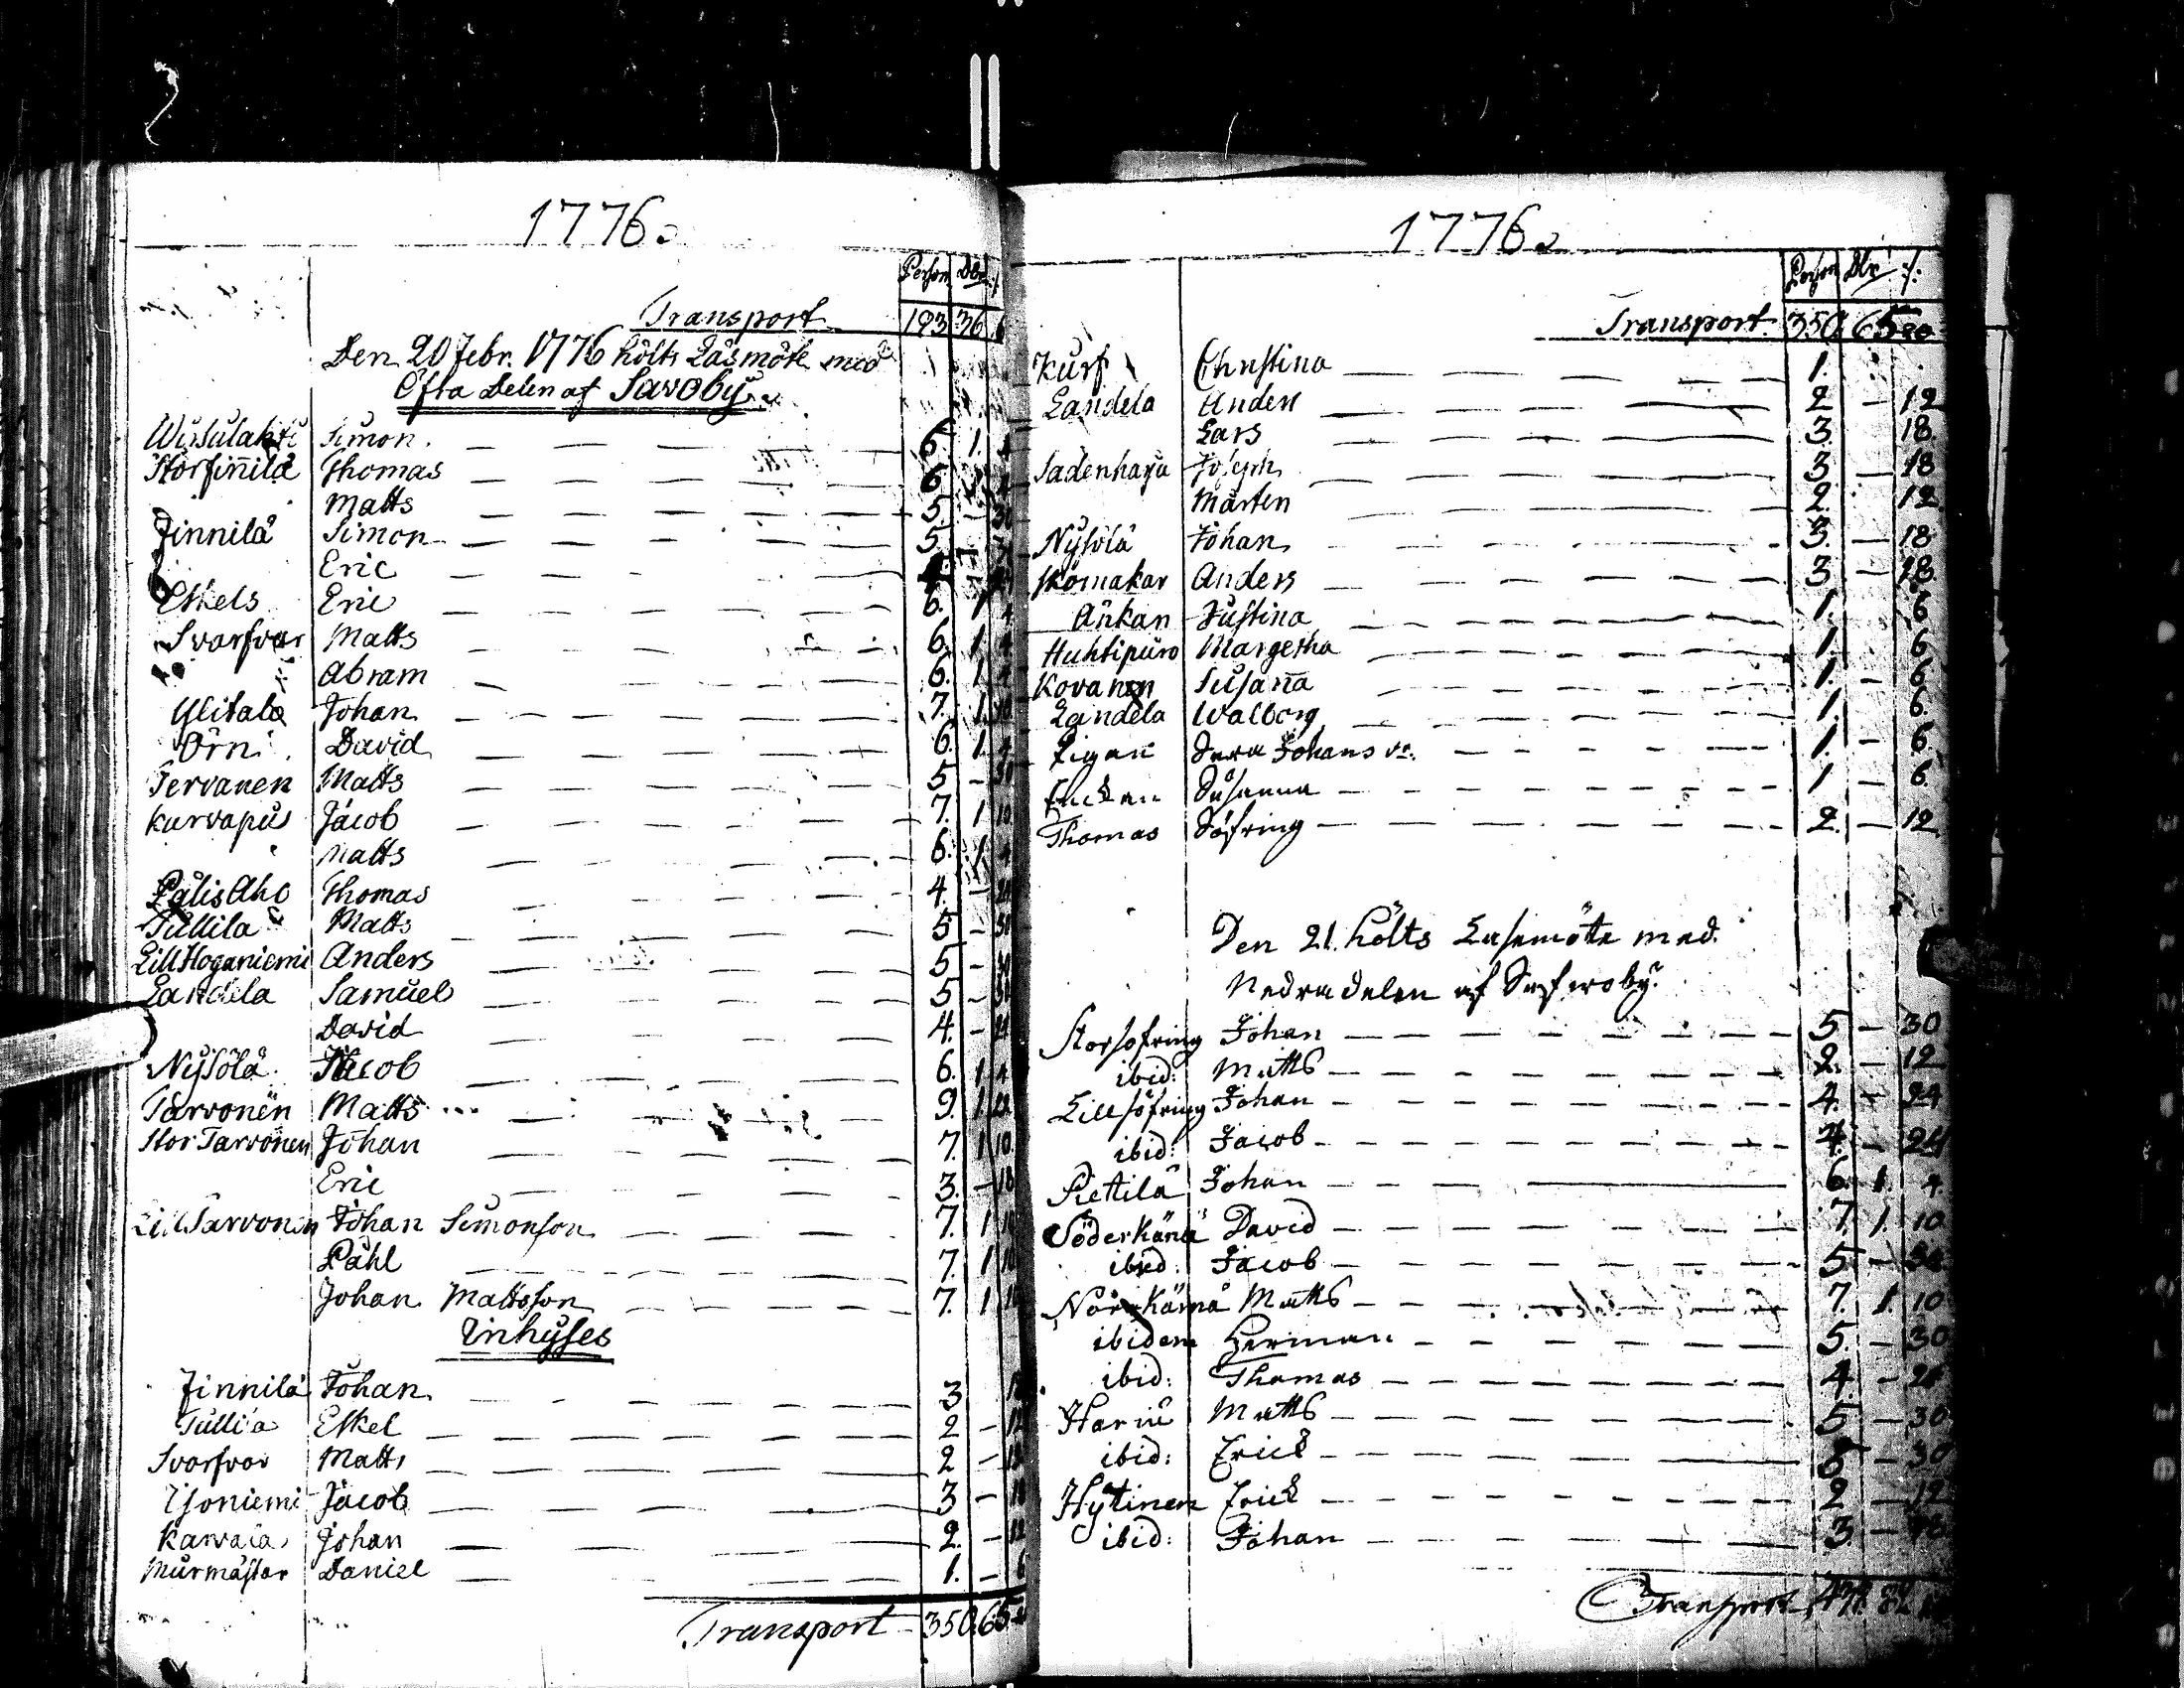 1776.
Person Dlr
Transport 193 36 6
Den 20 Febr. 1776 hölts Läsmöte med
Öfra Delen af Savoby
Simon. 6. 1. 4
Storfinnilä Thomas 6 1 4
Matts 5. — 30
Finnilä Simon 5. — 30
Eric
Eskels Eric 6. 1 4
Svarfvar Matts 6. 1 4
Abram 6. 1 4
Ylitalo Johan 7. 1. 10
Örni David 6. 1. 4
Tervanen Matts 5 — 30
Karvapus Jacob 7. 1 10
Matts 6. 1. 4
Pålis Aho Thomas 4. — 24
Tullila Matts 5 — 30
Lill Hoganiemi Anders 5 — 30
Landela Samuel 5 — 30
David 4. — 24
Nysölä Jacob 6. 1 4
Tarvonen Matts 9. 1 22
Stor Tarvonen Johan 7. 1 10
Eric 3. — 18
Lill Tarvonen Johan Simonson 7. 1 10
Påhl 7. 1 10
Johan Mattsson 7. 1 10
Inhyses
Finnilä Johan 3 18
Eskel 2 — 12
Svarfvar Matts 2 — 12
Jacob 3 — 18
Johan 2. — 12
Murmästar Daniel 1. — 6
Transport 350. 65 20
1776.
Person Dlr
Transport 350. 65 20
Kurf Christina 1.
Landela Anders 2 — 12
Lars 3. 18.
Sadenharju Joseph 3 — 18
Mårten 2. 12
Nysölä Johan 3. — 18
Skomakar Anders 3 — 18.
Änkan Justina 1. 6
Huhtipuro Margetha 1. 6
Kovanen Susana 1. — 6
Landela Walborg 1. 6
Pigan Sara Johans 1. — 6
Enckan Susanna 1 — 6
Thomas Söfring 2. — 12
Den 21. hölts Läsemöte med
Nedra delen af Safwoby.
Storsöfring Johan 5 — 30
ibid: Matts 2. — 12
Lill söfring Johan 4. — 24
ibid: Jacob 4. — 24
Pietilä Johan 6. 1. 4
Söderkänä David 7. 1. 10
ibid: Jacob 5 — 30
Norrkänä Matts 7. 1. 10
ibidem Herman 5. — 30
ibid: Thomas 4. — 24
Harju Matts 5 — 30
ibid: Erick 5 — 30
Hytinen Erick 2 — 12
ibid: Johan 3. — 18
Transport